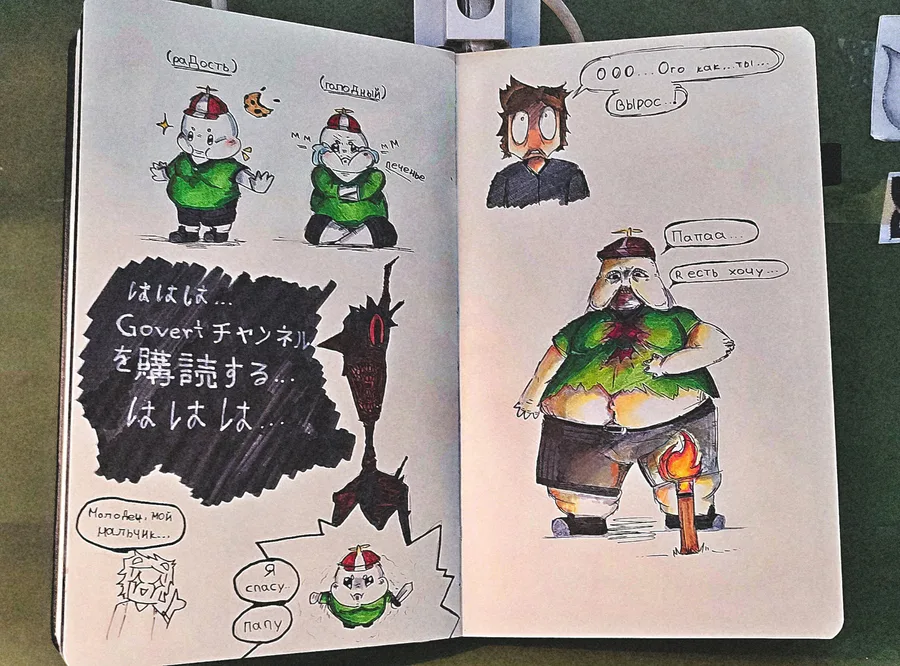 (раДость)
(голодный)
м м
м м
печенье
ははは...
Govertチャンネル
を購読する...
ははは...
Молодец, мой
мальчик...
Я
спасу..
папу
ООО...Ого как...ты...
вырос..!
Папаа...
Я есть хочу...